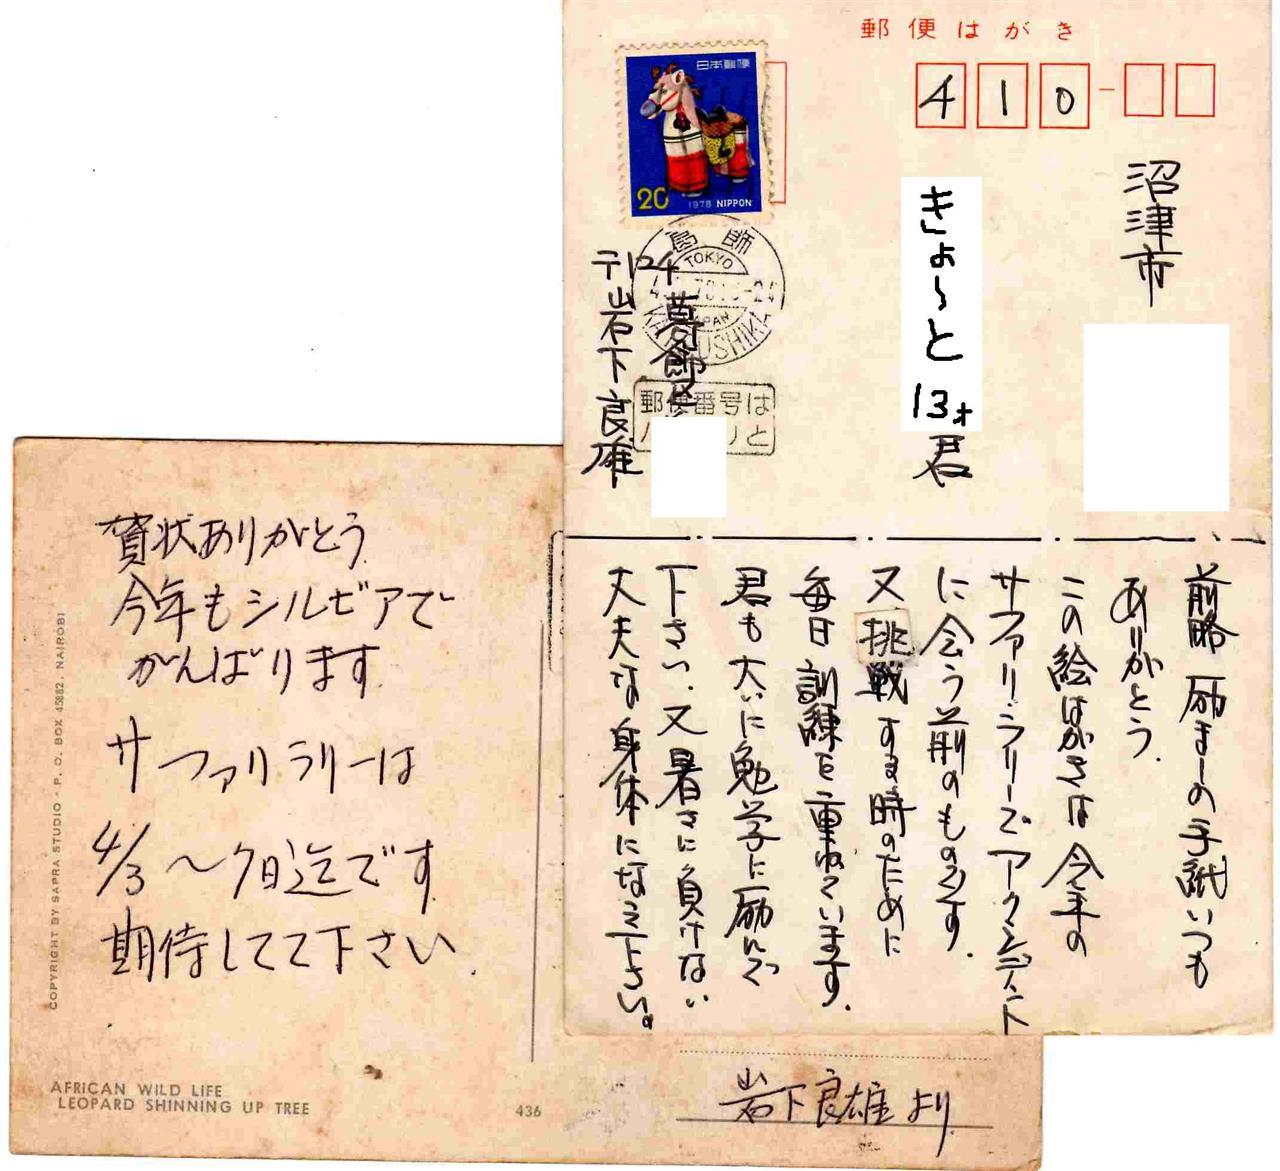 郵便はがき
410
日本郵便
20
1978 NIPPON
葛飾
TOKYO
JAPAN
KATSUSHIKA
郵便番号は
沼津市
きょ〜と
13才
君
〒124 葛飾区
岩下良雄
前略 励ましの手紙いつも
ありがとう.
この絵はがきは今年の
サファリ・ラリーでアクシデント
に会う前のものです.
又挑戦する時のために
毎日訓練を重ねています.
君も大いに勉学に励んで
下さい.又暑さに負けない
丈夫な身体になって下さい。
賀状ありがとう.
今年もシルビアで
がんばります.
サファリラリーは
4/3〜7日迄です
期待してて下さい.
COPYRIGHT BY SAPRA STUDIO - P. O. BOX 45882, NAIROBI
AFRICAN WILD LIFE
LEOPARD SHINNING UP TREE
436
岩下良雄より.